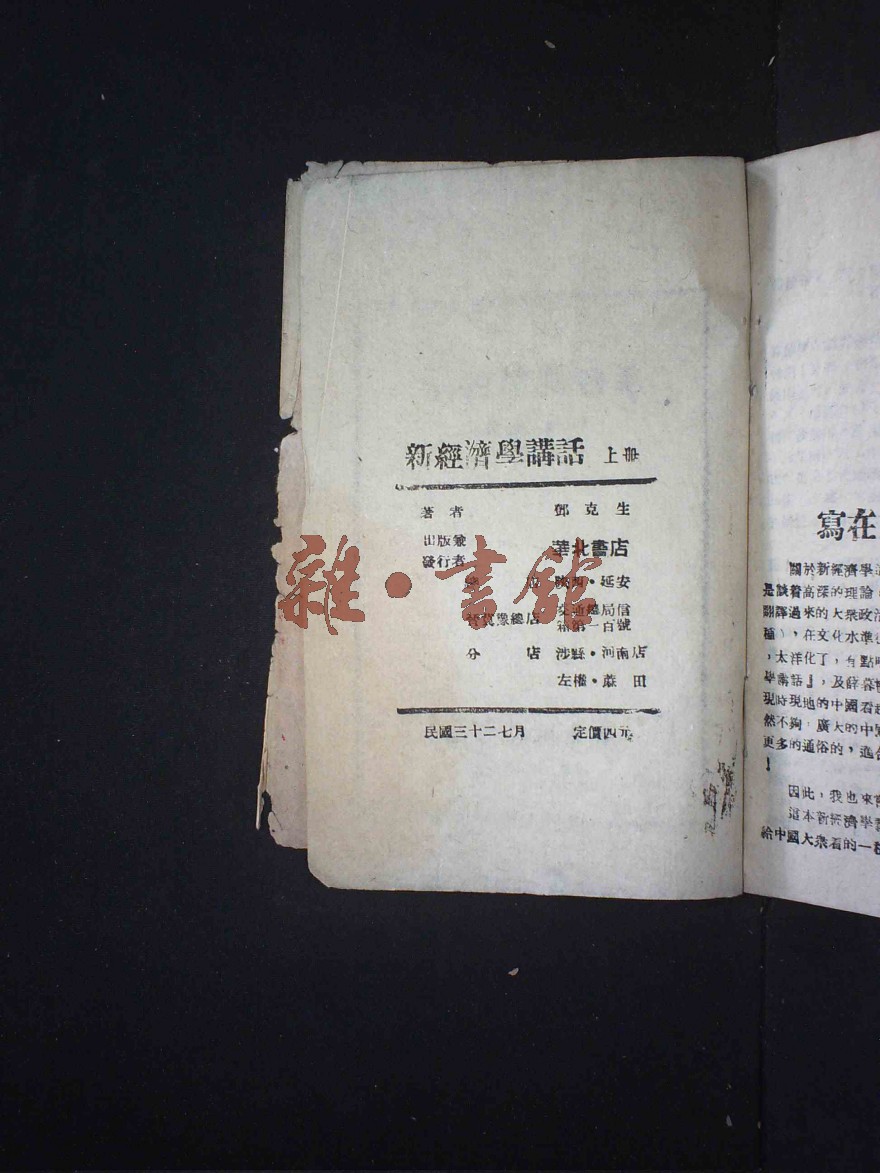 新經濟學講話 上冊
著者 鄧克生
出版兼發行者 華北書店
總店 陝西·延安
冀魯豫總店 交通總局信箱第一百號
分店 涉縣·河南店
左權·蔴田
民國三十二七月 定價四元
雜·書館
寫在
關於新經濟學
是談着高深的理論
翻譯過來的大衆政治
種），在文化水準
，太洋化了，有點
學講話』，及薛暮
現時現地的中國看起
然不夠，廣大的中
更多的通俗的，適合
！
因此，我也來
這本新經濟學
給中國大衆看的一